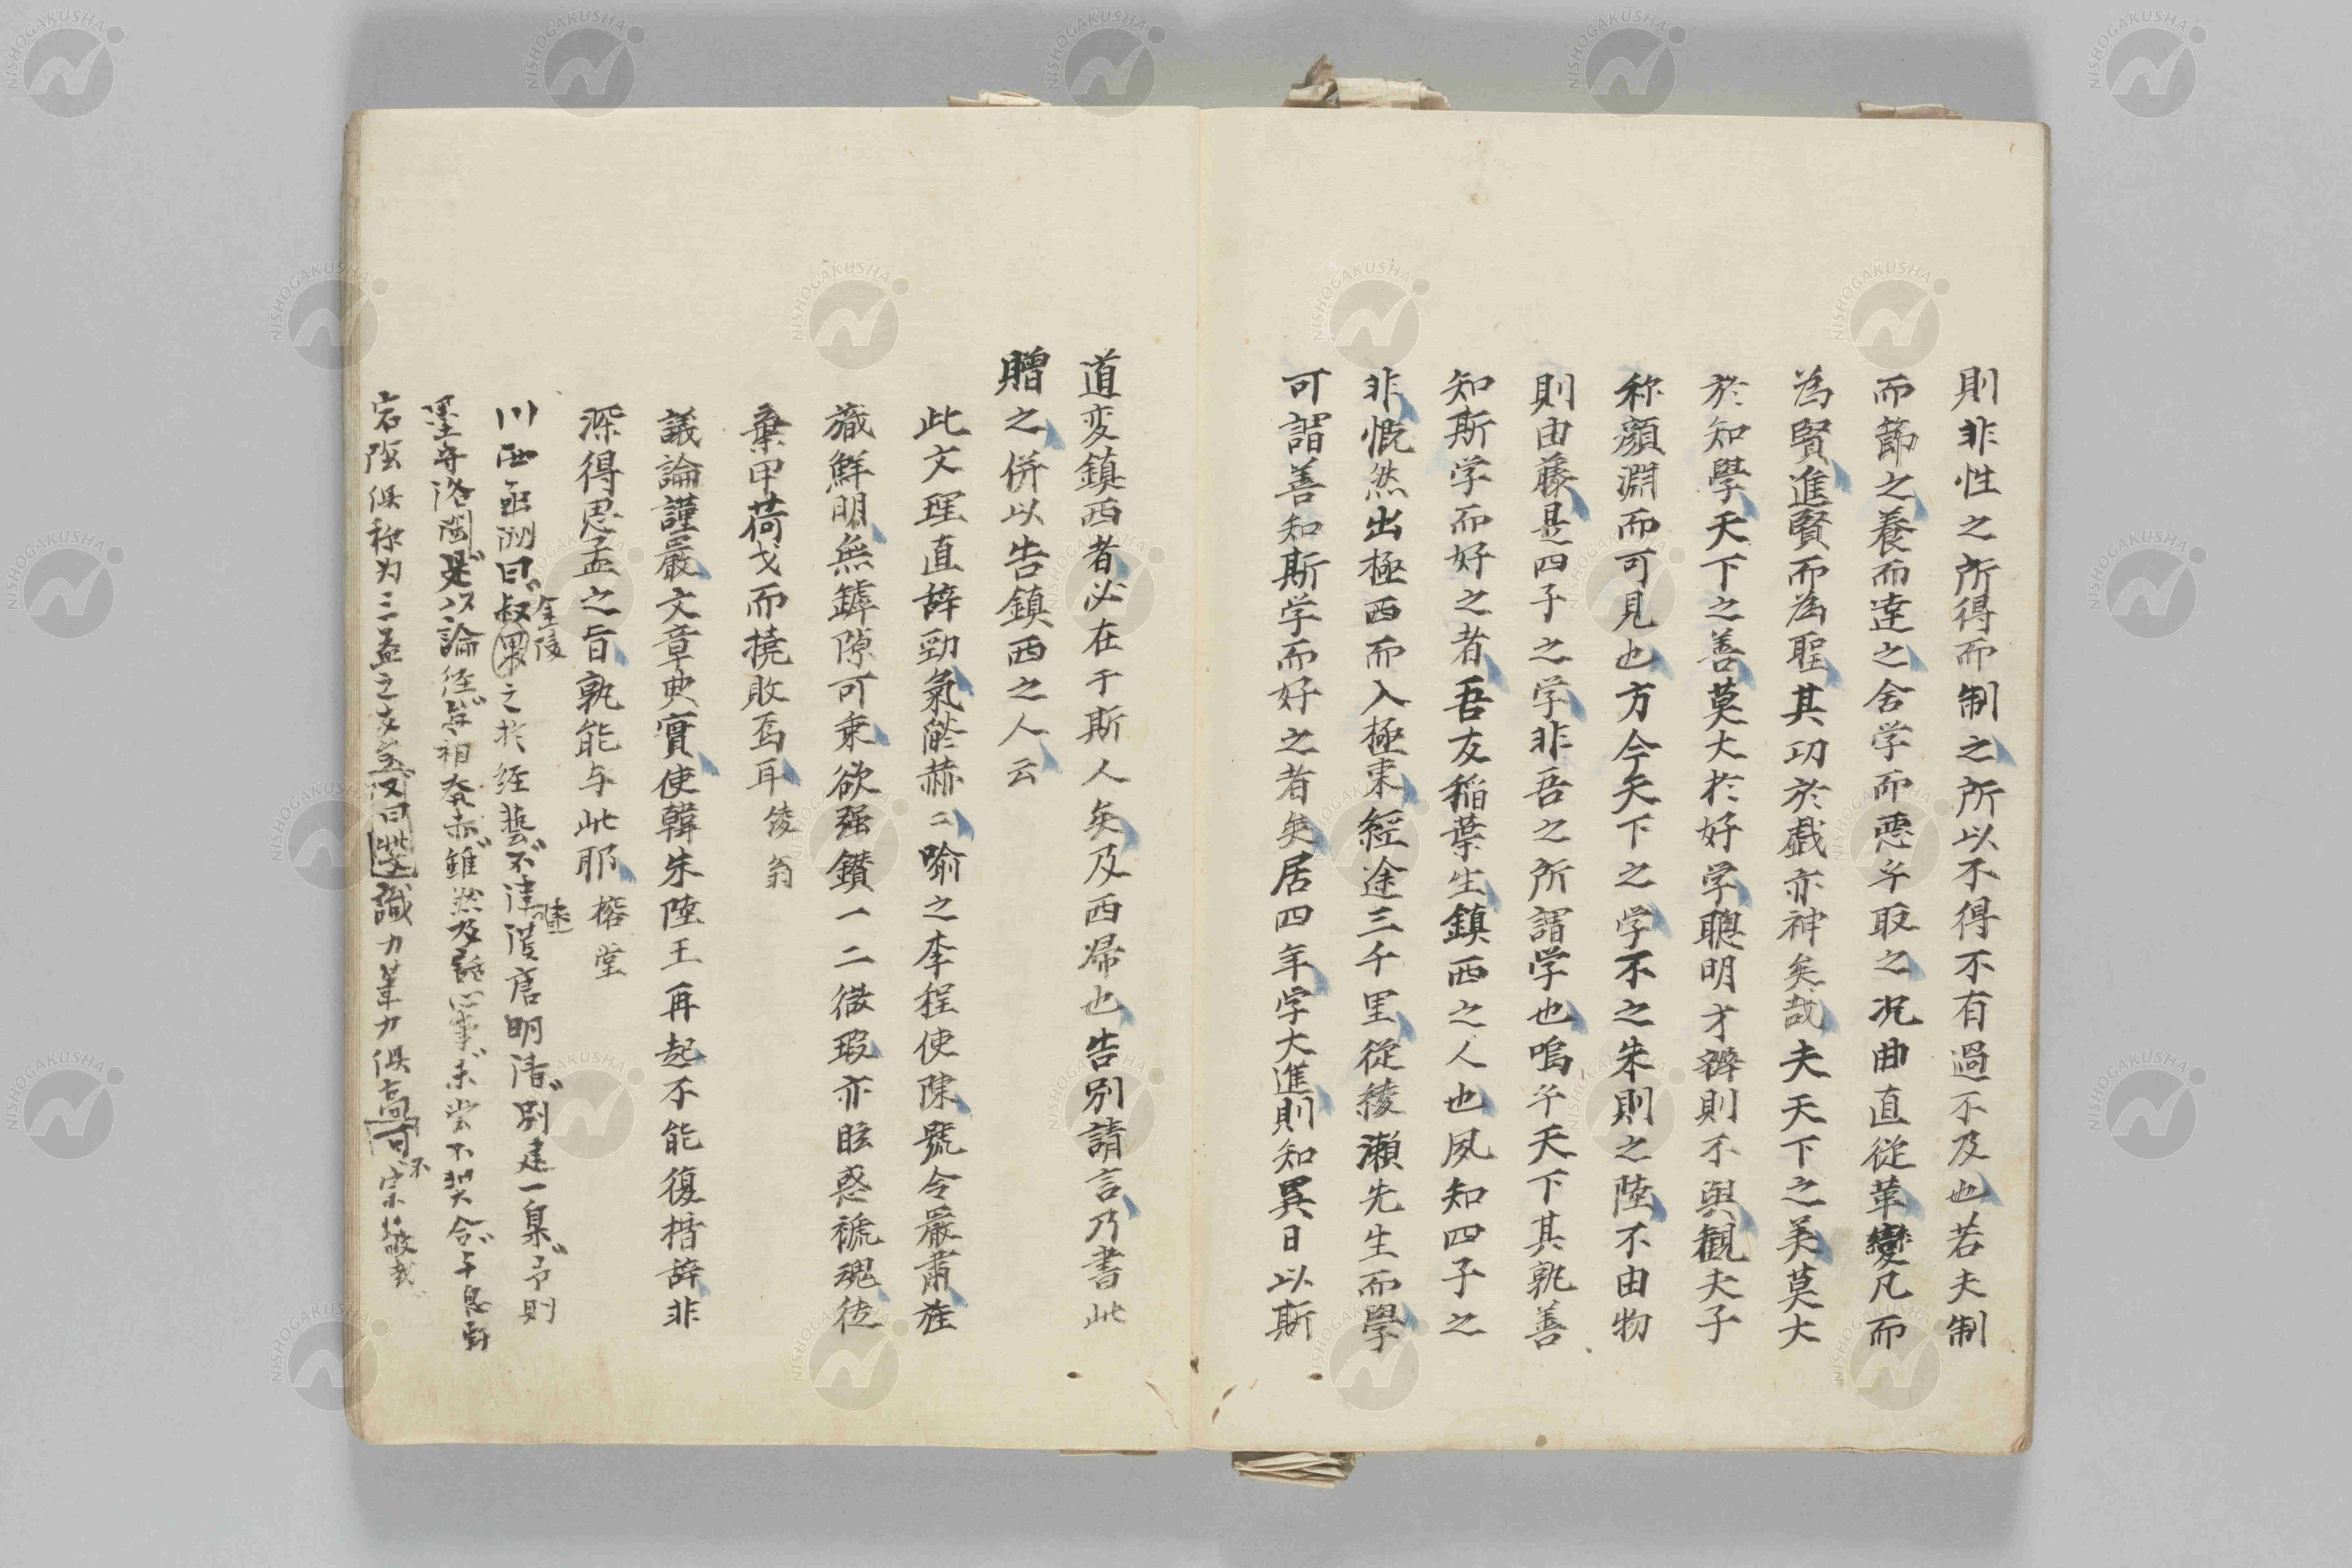 則非性之所得而制之所以不得不有過不及也若夫制
而節之養而達之舍学而悪乎取之況曲直從革變凡而
為賢進賢而為聖其功於戯亦神矣哉夫天下之美莫大
於知學天下之善莫大於好学聰明才辨則不與觀夫子
称顔淵而可見也方今天下之学不之朱則之陸不由物
則由藤是四子之学非吾之所謂学也嗚乎天下其孰善
知斯学而好之者吾友稲葉生鎮西之人也夙知四子之
非慨然出極西而入極東經途三千里從綾瀬先生而學
可謂善知斯学而好之者矣居四年学大進則知異日以斯
道変鎮西者必在于斯人矣及西帰也告別請言乃書此
贈之併以告鎮西之人云
此文理直辞勁氣燄赫二喻之李程使陳號令嚴肅旌
旗鮮明無罅隙可乗欲强鑽一二微瑕亦眩惑褫魂徒
棄甲荷戈而撓敗焉耳 綾翁
議論謹嚴文章典實使韓朱陸王再起不能復措辞非
深得思孟之旨孰能与此耶 榕堂
川西函洲曰叔果之於経藝不津漢唐明清別建一臬予則
金陵
陸
墨守洛閩是以論経每相齟齬雖然及話心事未尝不契合
宕陰俱称为三益之友又曰識力筆力俱高可不宗敬哉
NISHOGAKUSHA